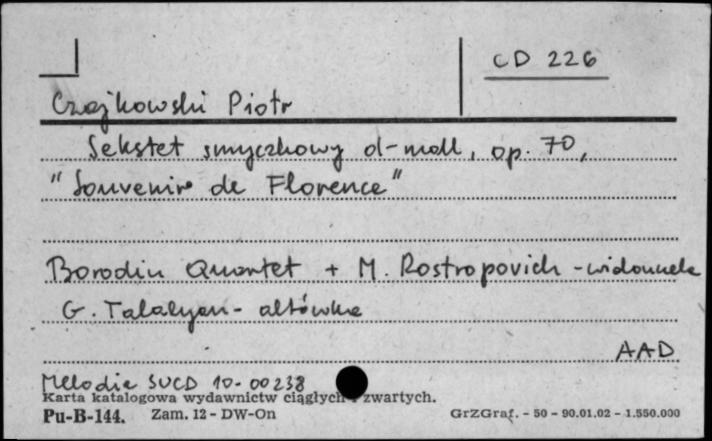 CD 226
Czajkowski Piotr
Sekstet smyczkowy d-moll, op. 70,
"Souvenir de Florence"
Borodin Quartet + M. Rostropovich - widonczela
G. Talalyan - altówka
AAD
Melodia SUCD 10-00238
Karta katalogowa wydawnictw ciągłych i zwartych.
Pu-B-144. Zam. 12 - DW-On GrZGraf. - 50 - 90.01.02 - 1.550.000